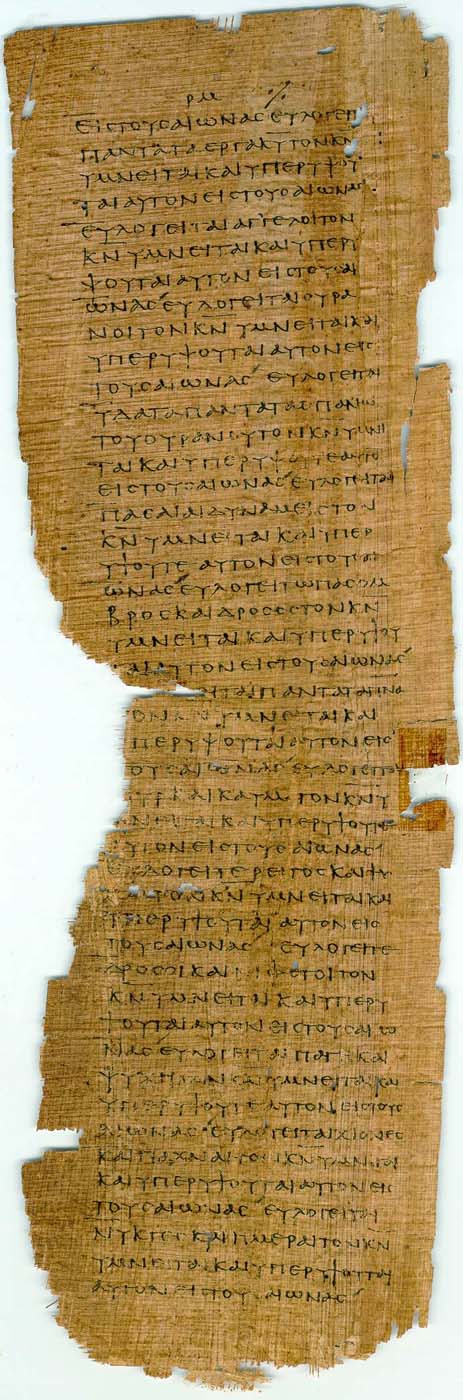 ΡΜ
ΕΙϹΤΟΥϹΑΙΩΝΑϹ ΕΥΛΟΓΕΙΤΕ
ΠΑΝΤΑΤΑΕΡΓΑΚΥΤΟΝΚΝ
ΥΜΝΕΙΤΑΙΚΑΙΥΠΕΡΥΨΟΥ
ΤΑΙΑΥΤΟΝΕΙϹΤΟΥϹΑΙΩΝΑϹ
ΕΥΛΟΓΕΙΤΑΙΑΓΓΕΛΟΙΤΟΝ
ΚΝΥΜΝΕΙΤΑΙΚΑΙΥΠΕΡΥ
ΨΟΥΤΑΙΑΥΤΟΝΕΙϹΤΟΥϹΑΙ
ΩΝΑϹ ΕΥΛΟΓΕΙΤΑΙΟΥΡΑ
ΝΟΙΤΟΝΚΝΥΜΝΕΙΤΑΙΚΑΙ
ΥΠΕΡΥΨΟΥΤΑΙΑΥΤΟΝΕΙϹ
ΤΟΥϹΑΙΩΝΑϹ ΕΥΛΟΓΕΙΤΑΙ
ΥΔΑΤΑΠΑΝΤΑΤΑΕΠΑΝΩ
ΤΟΥΟΥΡΑΝΟΥΤΟΝΚΝΥΜΝΙ
ΤΑΙΚΑΙΥΠΕΡΥΨΟΥΤΕΑΥΤΟ
ΕΙϹΤΟΥϹΑΙΩΝΑϹ ΕΥΛΟΓΕΙΤΑΙ
ΠΑϹΑΙΑΙΔΥΝΑΜΕΙϹΤΟΝ
ΚΝΥΜΝΕΙΤΑΙΚΑΙΥΠΕΡ
ΥΨΟΥΤΕΑΥΤΟΝΕΙϹΤΟΥϹΑΙ
ΩΝΑϹ ΕΥΛΟΓΕΙΤΩΠΑϹΟΜ
ΒΡΟϹΚΑΙΔΡΟϹΟϹΤΟΝΚΝ
ΥΜΝΕΙΤΑΙΚΑΙΥΠΕΡΥΨΟΥ
ΤΑΙΑΥΤΟΝΕΙϹΤΟΥϹΑΙΩΝΑϹ
ΕΙΤΑΙΠΑΝΤΑΤΑΠΝΑ
ΟΝΚΝΥΜΝΕΙΤΑΙΚΑΙ
ΠΕΡΥΨΟΥΤΑΙΑΥΤΟΝΕΙϹ
ΟΥϹΑΙΩΝΑϹ ΕΥΛΟΓΕΙΤΑΙ
ΥΡΚΑΙΚΑΥΜΑΤΟΝΚΝΥ
ΜΝΕΙΤΑΙΚΑΙΥΠΕΡΥΨΟΥΤΕ
ΑΥΤΟΝΕΙϹΤΟΥϹΑΙΩΝΑϹ
ΕΥΛΟΓΕΙΤΕΡΕΙΓΟϹΚΑΙΨΥ
ΧΟϹΤΟΝΚΝΥΜΝΕΙΤΑΙΚΑΙ
ΥΠΕΡΥΨΟΥΤΑΙΑΥΤΟΝΕΙϹ
ΤΟΥϹΑΙΩΝΑϹ ΕΥΛΟΓΕΙΤΕ
ΔΡΟϹΟΙΚΑΙΝΙΦΕΤΟΙΤΟΝ
ΚΝΥΜΝΕΙΤΑΙΚΑΙΥΠΕΡΥ
ΨΟΥΤΑΙΑΥΤΟΝΕΙϹΤΟΥϹΑΙΩ
ΝΑϹ ΕΥΛΟΓΕΙΤΑΙΠΑΓΗΚΑΙ
ΨΥΧΗΤΟΝΚΝΥΜΝΕΙΤΑΙΚΑΙ
ΥΠΕΡΥΨΟΥΤΕΑΥΤΟΝΕΙϹΤΟΥϹ
ΑΙΩΝΑϹ ΕΥΛΟΓΕΙΤΑΙΧΙΟΝΕϹ
ΚΑΙΠΑΧΝΑΙΤΟΝΚΝΥΜΝΙΤΑΙ
ΚΑΙΥΠΕΡΥΨΟΥΤΑΙΑΥΤΟΝΕΙϹ
ΤΟΥϹΑΙΩΝΑϹ ΕΥΛΟΓΕΙΤΑΙ
ΝΥΚΤΕϹΚΑΙΗΜΕΡΑΙΤΟΝΚΝ
ΥΜΝΕΙΤΑΙΚΑΙΥΠΕΡΥΨΟΥΤΑΙ
ΑΥΤΟΝΕΙϹΤΟΥϹΑΙΩΝΑϹ